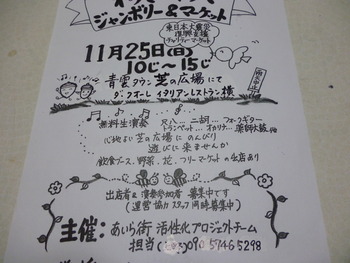 ジャンボリー&マーケット
東日本大震災
復興支援
チャリティーマーケット
11月25日(日)
10じ~15じ
青雲タウン 芝の広場にて
ダ・クオーレ イタリアンレストラン横
無料生演奏 尺八… 二胡… フォークギター
トランペット… オカリナ…
心地よい芝の広場にのんびり
遊びに来ませんか
飲食ブース、野菜、花、フリーマーケットの出店あり
出店者&演奏参加者 募集中です
(運営協力スタッフ同時募集中)
主催: あいら街 活性化プロジェクトチーム
担当 090 5746 5298